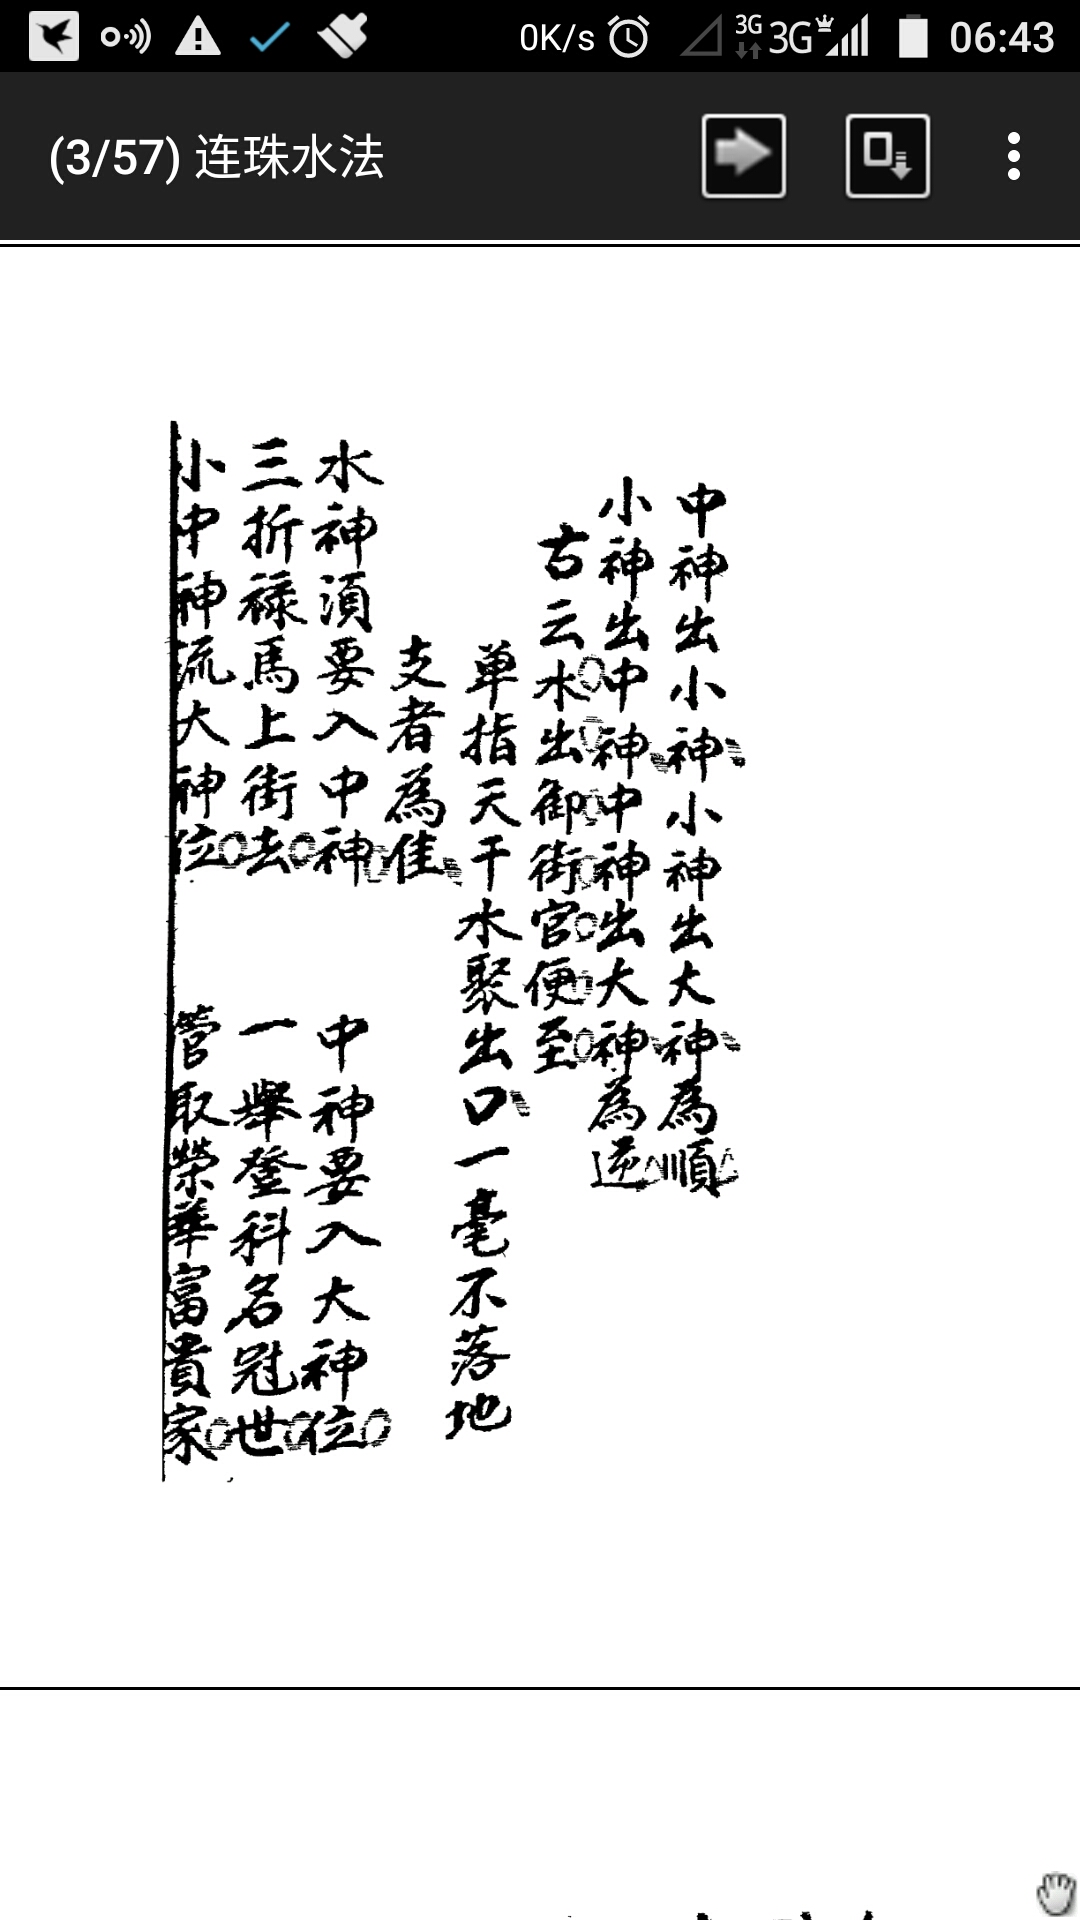 0K/s 3G 3G 06:43
(3/57) 连珠水法
中神出小神小神出大神為順
小神出中神中神出大神為逆
古云水出御街官便至
单指天干水聚出口一毫不落地
支者為佳
水神須要入中神 中神要入大神位
三折禄馬上街去 一舉登科名冠世
小中神流大神位 管取榮華富貴家